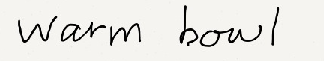 warm bowl